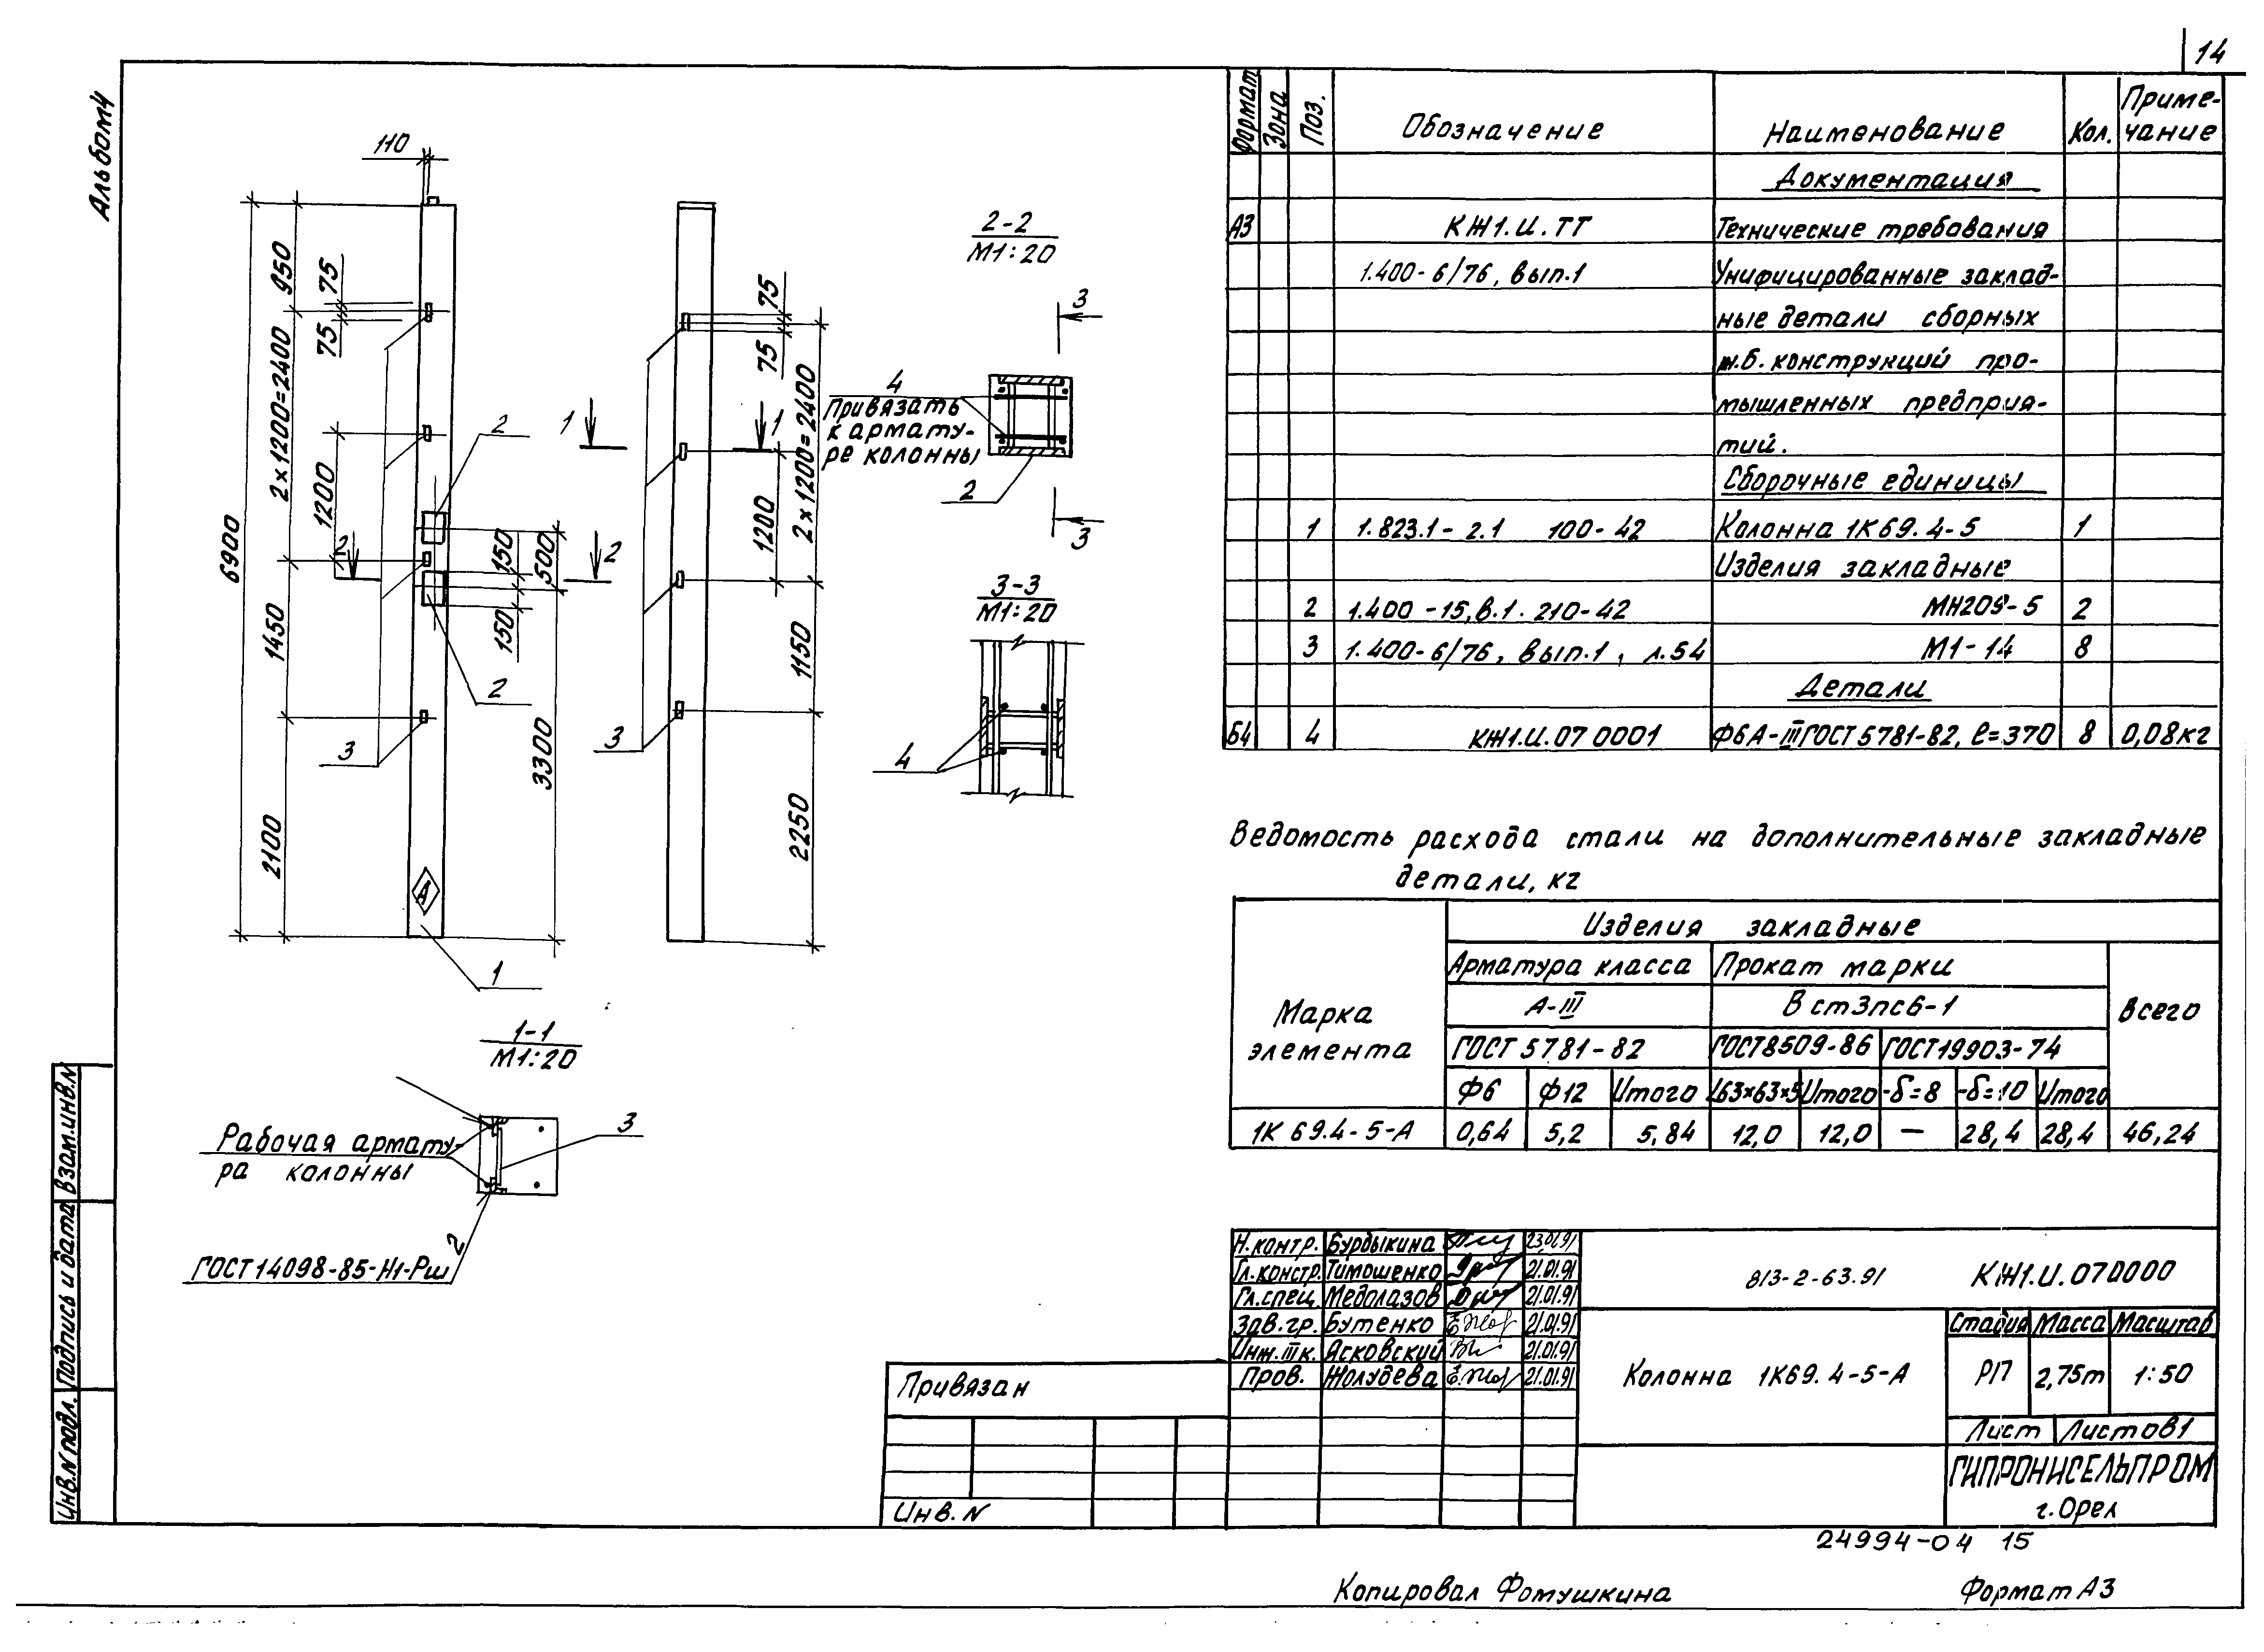 14
Альбом 4
110
6900
950
75
75
2×1200=2400
1200
1450
2100
2
2
2
2
150
150
500
3300
3
А
1
1
1
75
75
2×1200=2400
1200
1150
2250
3
2-2
М1:20
3
3
4
Привязать
к армату-
ре колонны
2
3-3
М1:20
4
1-1
М1:20
Рабочая армату-
ра колонны
3
2
ГОСТ14098-85-Н1-Рш
Формат Зона Поз. Обозначение Наименование Кол. Приме-
чание
Документация
А3 КЖ1.И.ТТ Технические требования
1.400-6/76, вып.1 Унифицированные заклад-
ные детали сборных
ж.б. конструкций про-
мышленных предприя-
тий.
Сборочные единицы
1 1.823.1-2.1 100-42 Колонна 1К69.4-5 1
Изделия закладные
2 1.400-15, в.1. 210-42 МН209-5 2
3 1.400-6/76, вып.1, л.54 М1-14 8
Детали
Б4 4 КЖ1.И.07 0001 Ф6А-III ГОСТ 5781-82, ℓ=370 8 0,08кг
Ведомость расхода стали на дополнительные закладные
детали, кг
Марка
элемента
Изделия закладные
Арматура класса Прокат марки
А-III Вст3пс6-1 Всего
ГОСТ 5781-82 ГОСТ8509-86 ГОСТ19903-74
Ф6 Ф12 Итого L63×63×5 Итого -δ=8 -δ=10 Итого
1К 69.4-5-А 0,64 5,2 5,84 12,0 12,0 — 28,4 28,4 46,24
Н.контр. Бурдыкина 23.01.91
Гл.констр. Тимошенко 21.01.91
Гл.спец. Медолазов 21.01.91
Зав.гр. Бутенко 21.01.91
Инж. III к. Ясковский 21.01.91
Пров. Жолудева 21.01.91
813-2-63.91 КЖ1.И.070000
Колонна 1К69.4-5-А
Стадия Масса Масштаб
РП 2,75т 1:50
Лист Листов 1
ГИПРОНИСЕЛЬПРОМ
г.Орел
Привязан
Инв.N
Взам.инв.N
Подпись и дата
Инв.N подл.
24994-04 15
Копировал Фомушкина Формат А3